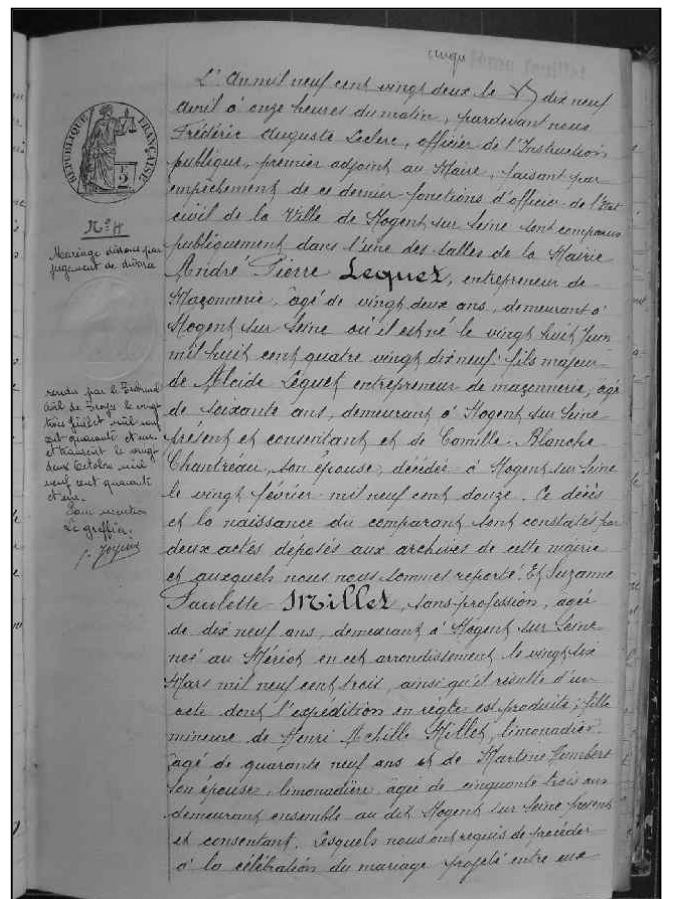 cinqu ième feuillet
L'An mil neuf cent vingt deux le dix neuf
Avril à onze heures du matin, pardevant nous
Frédéric Auguste Leclerc, officier de l'Instruction
publique, premier adjoint au Maire, faisant par
empêchement de ce dernier fonctions d'officier de l'Etat
civil de la Ville de Nogent sur Seine sont comparus
publiquement dans l'une des salles de la Mairie
André Pierre Lequet, entrepreneur de
Maçonnerie, âgé de vingt deux ans, demeurant à
Nogent sur Seine où il est né le vingt huit Juin
mil huit cent quatre vingt dix neuf; fils majeur
de Alcide Lequet entrepreneur de maçonnerie, âgé
de soixante ans, demeurant à Nogent sur Seine
présent et consentant et de Camille Blanche
Chantréau, son épouse, décédée à Nogent sur Seine
le vingt février mil neuf cent douze. Ce décès
et la naissance du comparant sont constatés par
deux actes déposés aux archives de cette mairie
et auxquels nous nous sommes reporté. Et Suzanne
Paulette Millet, sans profession, agée
de dix neuf ans, demeurant à Nogent sur Seine
née au Mériot en cet arrondissement le vingt six
Mars mil neuf cent trois, ainsi qu'il résulte d'un
acte dont l'expédition en règle est produite; fille
mineure de Henri Achille Millet, limonadier
âgé de quarante neuf ans et de Marthe Lambert
son épouse, limonadière âgée de cinquante trois ans
demeurant ensemble au dit Nogent sur Seine présents
et consentant. Lesquels nous ont requis de procéder
à la célébration du mariage projeté entre eux
RÉPUBLIQUE FRANÇAISE
N° 14
Mariage dissous par
jugement de divorce
rendu par le Tribunal
Civil de Troyes le vingt
trois juillet mil neuf
cent quarante et un
et transcrit le vingt
deux Octobre mil
neuf cent quarante
et un.
Pour mention
Le greffier.